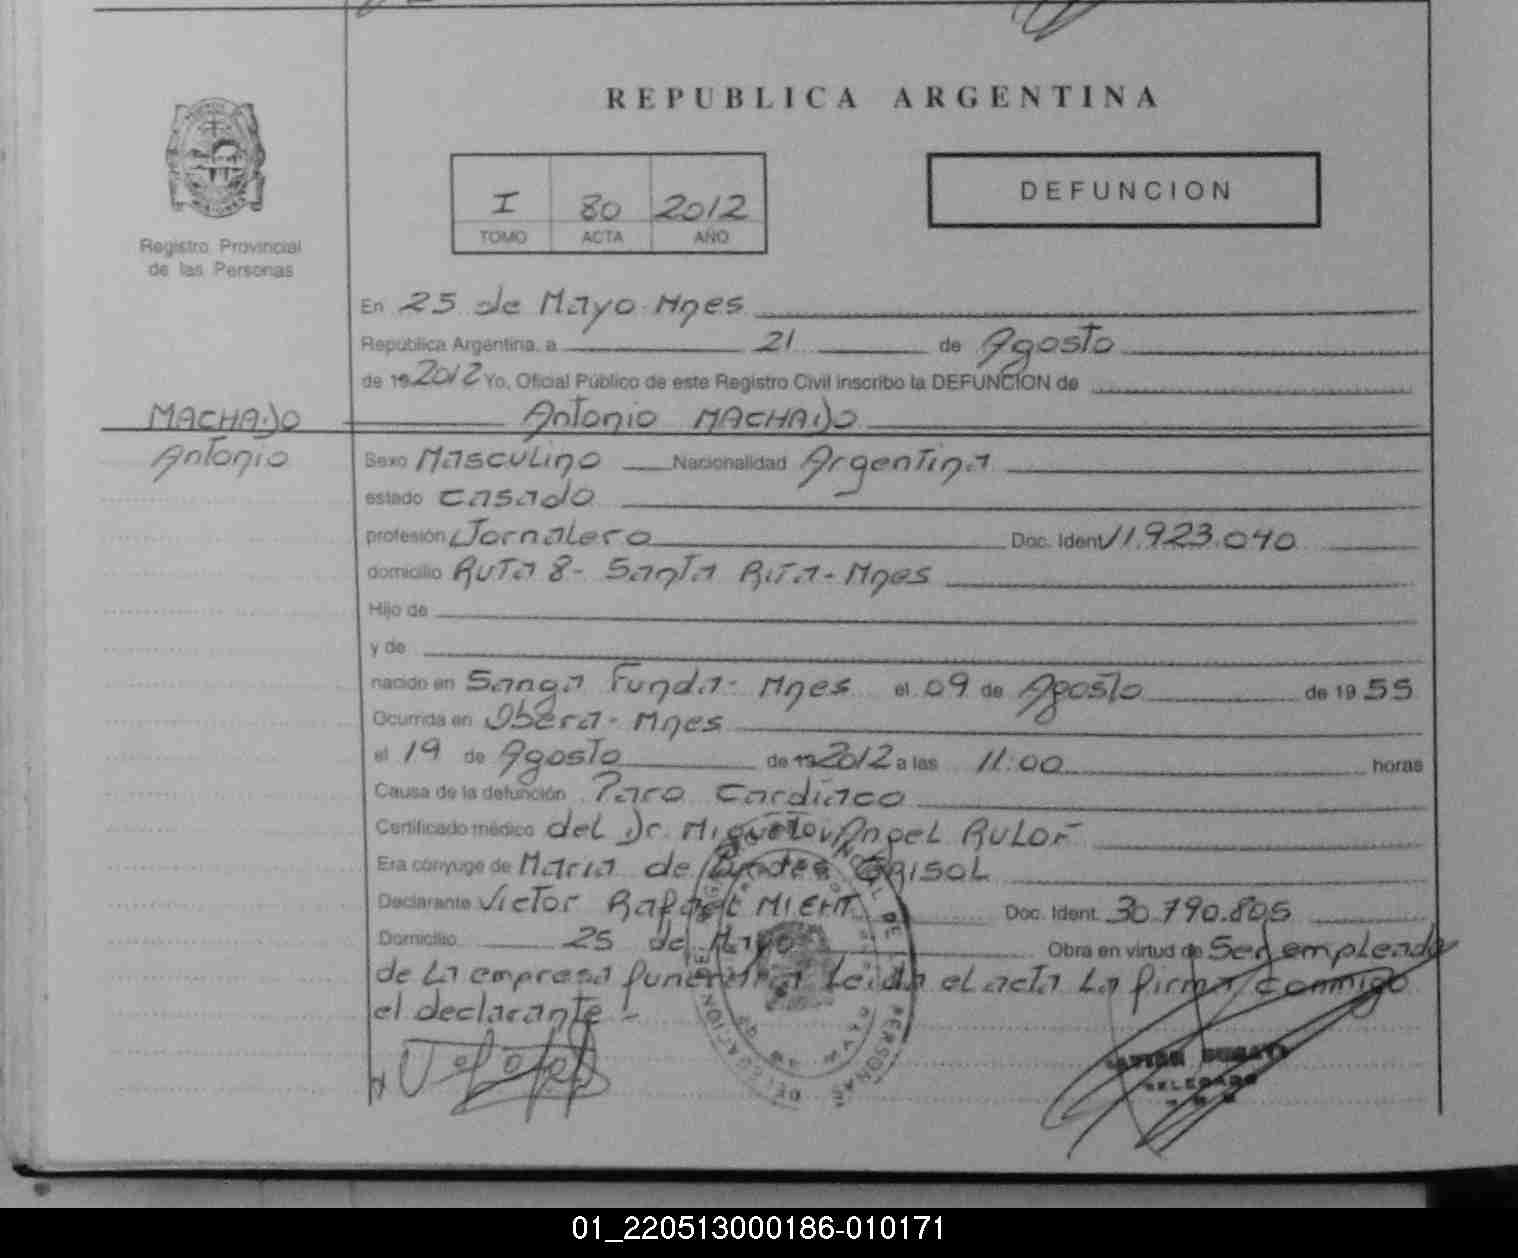 REPUBLICA ARGENTINA
I 80 2012
TOMO ACTA AÑO
DEFUNCION
Registro Provincial
de las Personas
En 25 de Mayo - Mnes
República Argentina, a 21 de Agosto
de 19 2012 Yo, Oficial Público de este Registro Civil inscribo la DEFUNCION de
MACHADO
Antonio MACHADO
Antonio
Sexo Masculino Nacionalidad Argentina
estado Casado
profesión Jornalero Doc. Ident. 11.923.040
domicilio Ruta 8 - Santa Rita - Mnes
Hijo de
y de
nacido en Sanga Funda - Mnes el 09 de Agosto de 1955
Ocurrida en Obera - Mnes
el 19 de Agosto de 19 2012 a las 11:00 horas
Causa de la defunción Paro Cardiaco
Certificado médico del Dr. Miguel Angel
Era cónyuge de Maria de
Declarante Victor Rafael Doc. Ident. 30.790.805
Domicilio 25 de Mayo Obra en virtud de Ser empleado
de La empresa funeraria Leida el acta La firma conmigo
el declarante -
DELEGADO
01_220513000186-010171